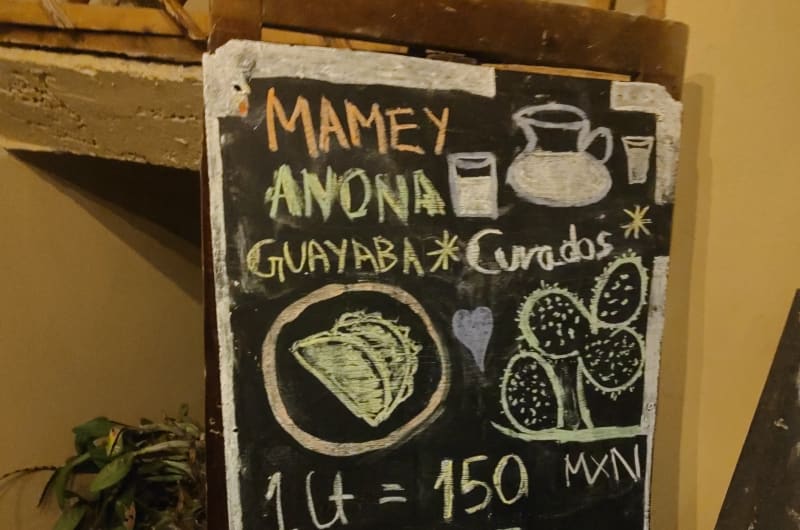 MAMEY
ANONA
GUAYABA * Curados *
1 Lt = 150 MXN